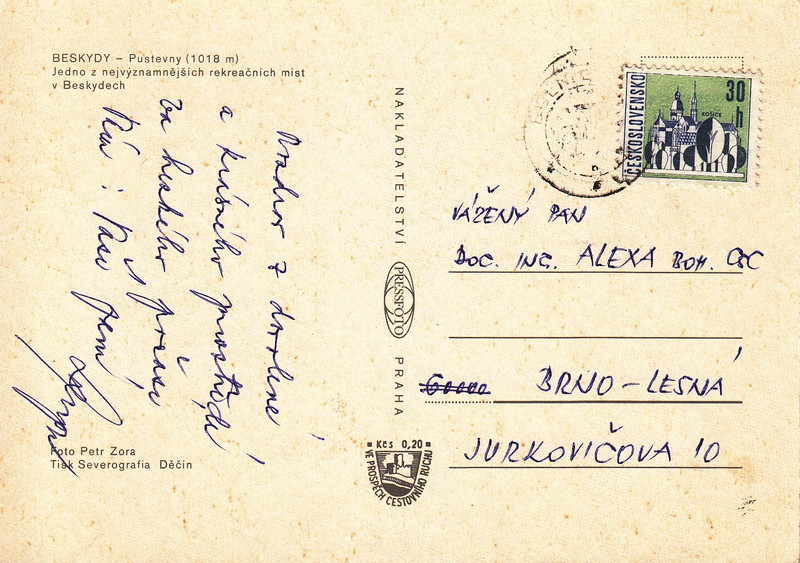 BESKYDY – Pustevny (1018 m)
Jedno z nejvýznamnějších rekreačních míst
v Beskydech
Pozdrav z dovolené
a krásného prostředí
Vám i Vaší paní
NAKLADATELSTVÍ
PRESSFOTO
PRAHA
Kčs 0,20
VE PROSPĚCH CESTOVNÍHO RUCHU
ČESKOSLOVENSKO
30 h
KOŠICE
VÁŽENÝ PAN
DOC. ING. ALEXA BOH. CSC
60000
BRNO – LESNÁ
JURKOVIČOVA 10
Foto Petr Zora
Tisk Severografia Děčín